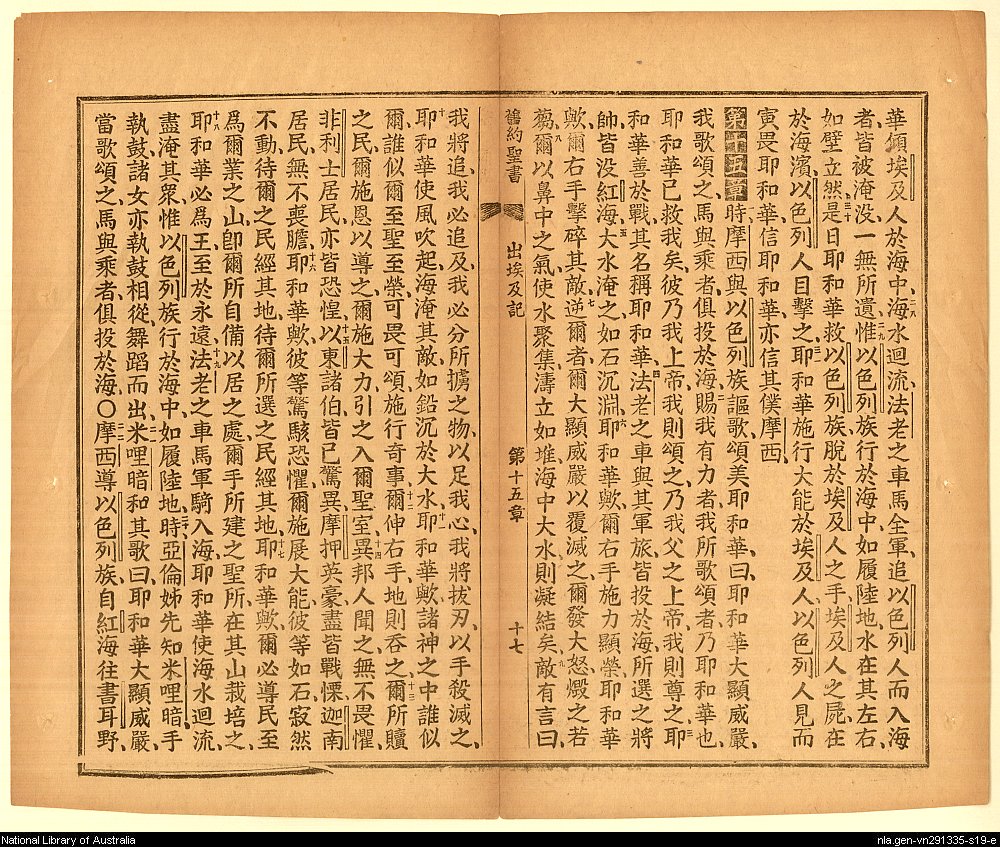 華傾埃及人於海中、二八海水迴流、法老之車馬全軍、追以色列人而入海
者、皆被淹没、一無所遺、二九惟以色列族行於海中、如履陸地、水在其左右、
如壁立然、三十是日耶和華救以色列族脫於埃及人之手、埃及人之屍、在
於海濱、以色列人目擊之、三一耶和華施行大能於埃及人、以色列人見而
寅畏耶和華、信耶和華、亦信其僕摩西、
第十五章一時摩西與以色列族謳歌頌美耶和華曰、耶和華大顯威嚴、
我歌頌之、馬與乘者、俱投於海、二賜我有力者、我所歌頌者、乃耶和華也、
耶和華已救我矣、彼乃我上帝、我則頌之、乃我父之上帝、我則尊之、三耶
和華善於戰、其名稱耶和華、四法老之車與其軍旅、皆投於海、所選之將
帥、皆没紅海、五大水淹之、如石沉淵、六耶和華歟、爾右手施力顯榮、耶和華
歟、爾右手擊碎其敵、七逆爾者、爾大顯威嚴以覆滅之、爾發大怒、燬之若
蒭、八爾以鼻中之氣、使水聚集、濤立如堆、海中大水則凝結矣、九敵有言曰、
舊約聖書 出埃及記 第十五章 十七
我將追、我必追及、我必分所擄之物、以足我心、我將拔刃、以手殺滅之、
十耶和華使風吹起、海淹其敵、如鉛沉於大水、十一耶和華歟、諸神之中誰似
爾、誰似爾至聖至榮、可畏可頌、施行奇事、十二爾伸右手、地則吞之、十三爾所贖
之民、爾施恩以導之、爾施大力、引之入爾聖室、十四異邦人聞之、無不畏懼、
非利士居民、亦皆恐惶、十五以東諸伯皆已驚異、摩押英豪盡皆戰慄、迦南
居民、無不喪膽、十六耶和華歟、彼等驚駭恐懼、爾施展大能、彼等如石寂然
不動、待爾之民經其地、待爾所選之民經其地、十七耶和華歟、爾必導民至
爲爾業之山、卽爾所自備以居之處、爾手所建之聖所、在其山栽培之、
十八耶和華必爲王、至於永遠、十九法老之車馬軍騎入海、耶和華使海水迴流、
盡淹其眾、惟以色列族行於海中、如履陸地、二十時亞倫姊先知米哩暗、手
執鼓、諸女亦執鼓相從舞蹈而出、二一米哩暗和其歌曰、耶和華大顯威嚴、
當歌頌之、馬與乘者、俱投於海、〇二二摩西導以色列族、自紅海往書耳野、
National Library of Australia
nla.gen-vn291335-s19-e